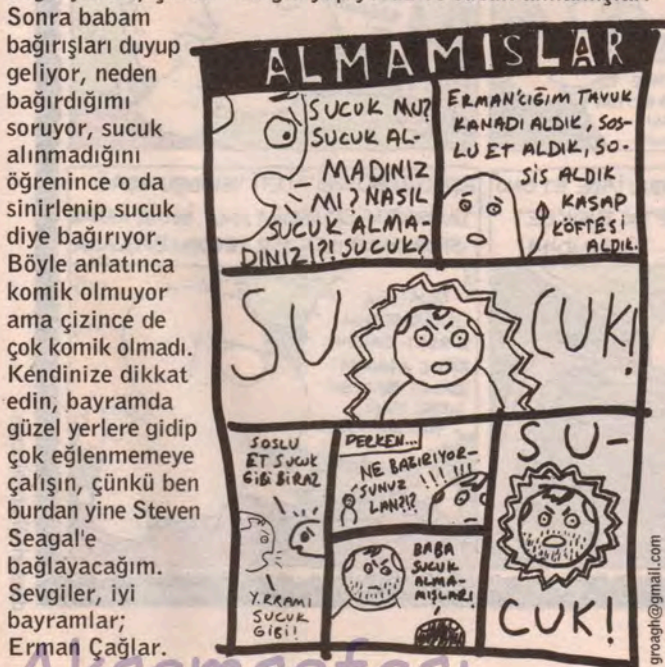 Sonra babam
bağırışları duyup
geliyor, neden
bağırdığımı
soruyor, sucuk
alınmadığını
öğrenince o da
sinirlenip sucuk
diye bağırıyor.
Böyle anlatınca
komik olmuyor
ama çizince de
çok komik olmadı.
Kendinize dikkat
edin, bayramda
güzel yerlere gidip
çok eğlenmemeye
çalışın, çünkü ben
burdan yine Steven
Seagal'e
bağlayacağım.
Sevgiler, iyi
bayramlar;
Erman Çağlar.
ALMAMISLAR
SUCUK MU?
SUCUK AL-
MADINIZ
MI? NASIL
SUCUK ALMA-
DINIZ!?! SUCUK?
ERMAN'CIĞIM TAVUK
KANADI ALDIK, SOS-
LU ET ALDIK, SO-
SİS ALDIK
KASAP
KÖFTESİ
ALDIK.
SU CUK!
SOSLU
ET SUCUK
GİBİ BİRAZ
Y.RRAMI
SUCUK
GİBİ!
DERKEN...
NE BAĞIRIYOR-
SUNUZ !!!!!
LAN?!?
BABA
SUCUK
ALMA-
MIŞLAR!
SU-
CUK!
groagh@gmail.com